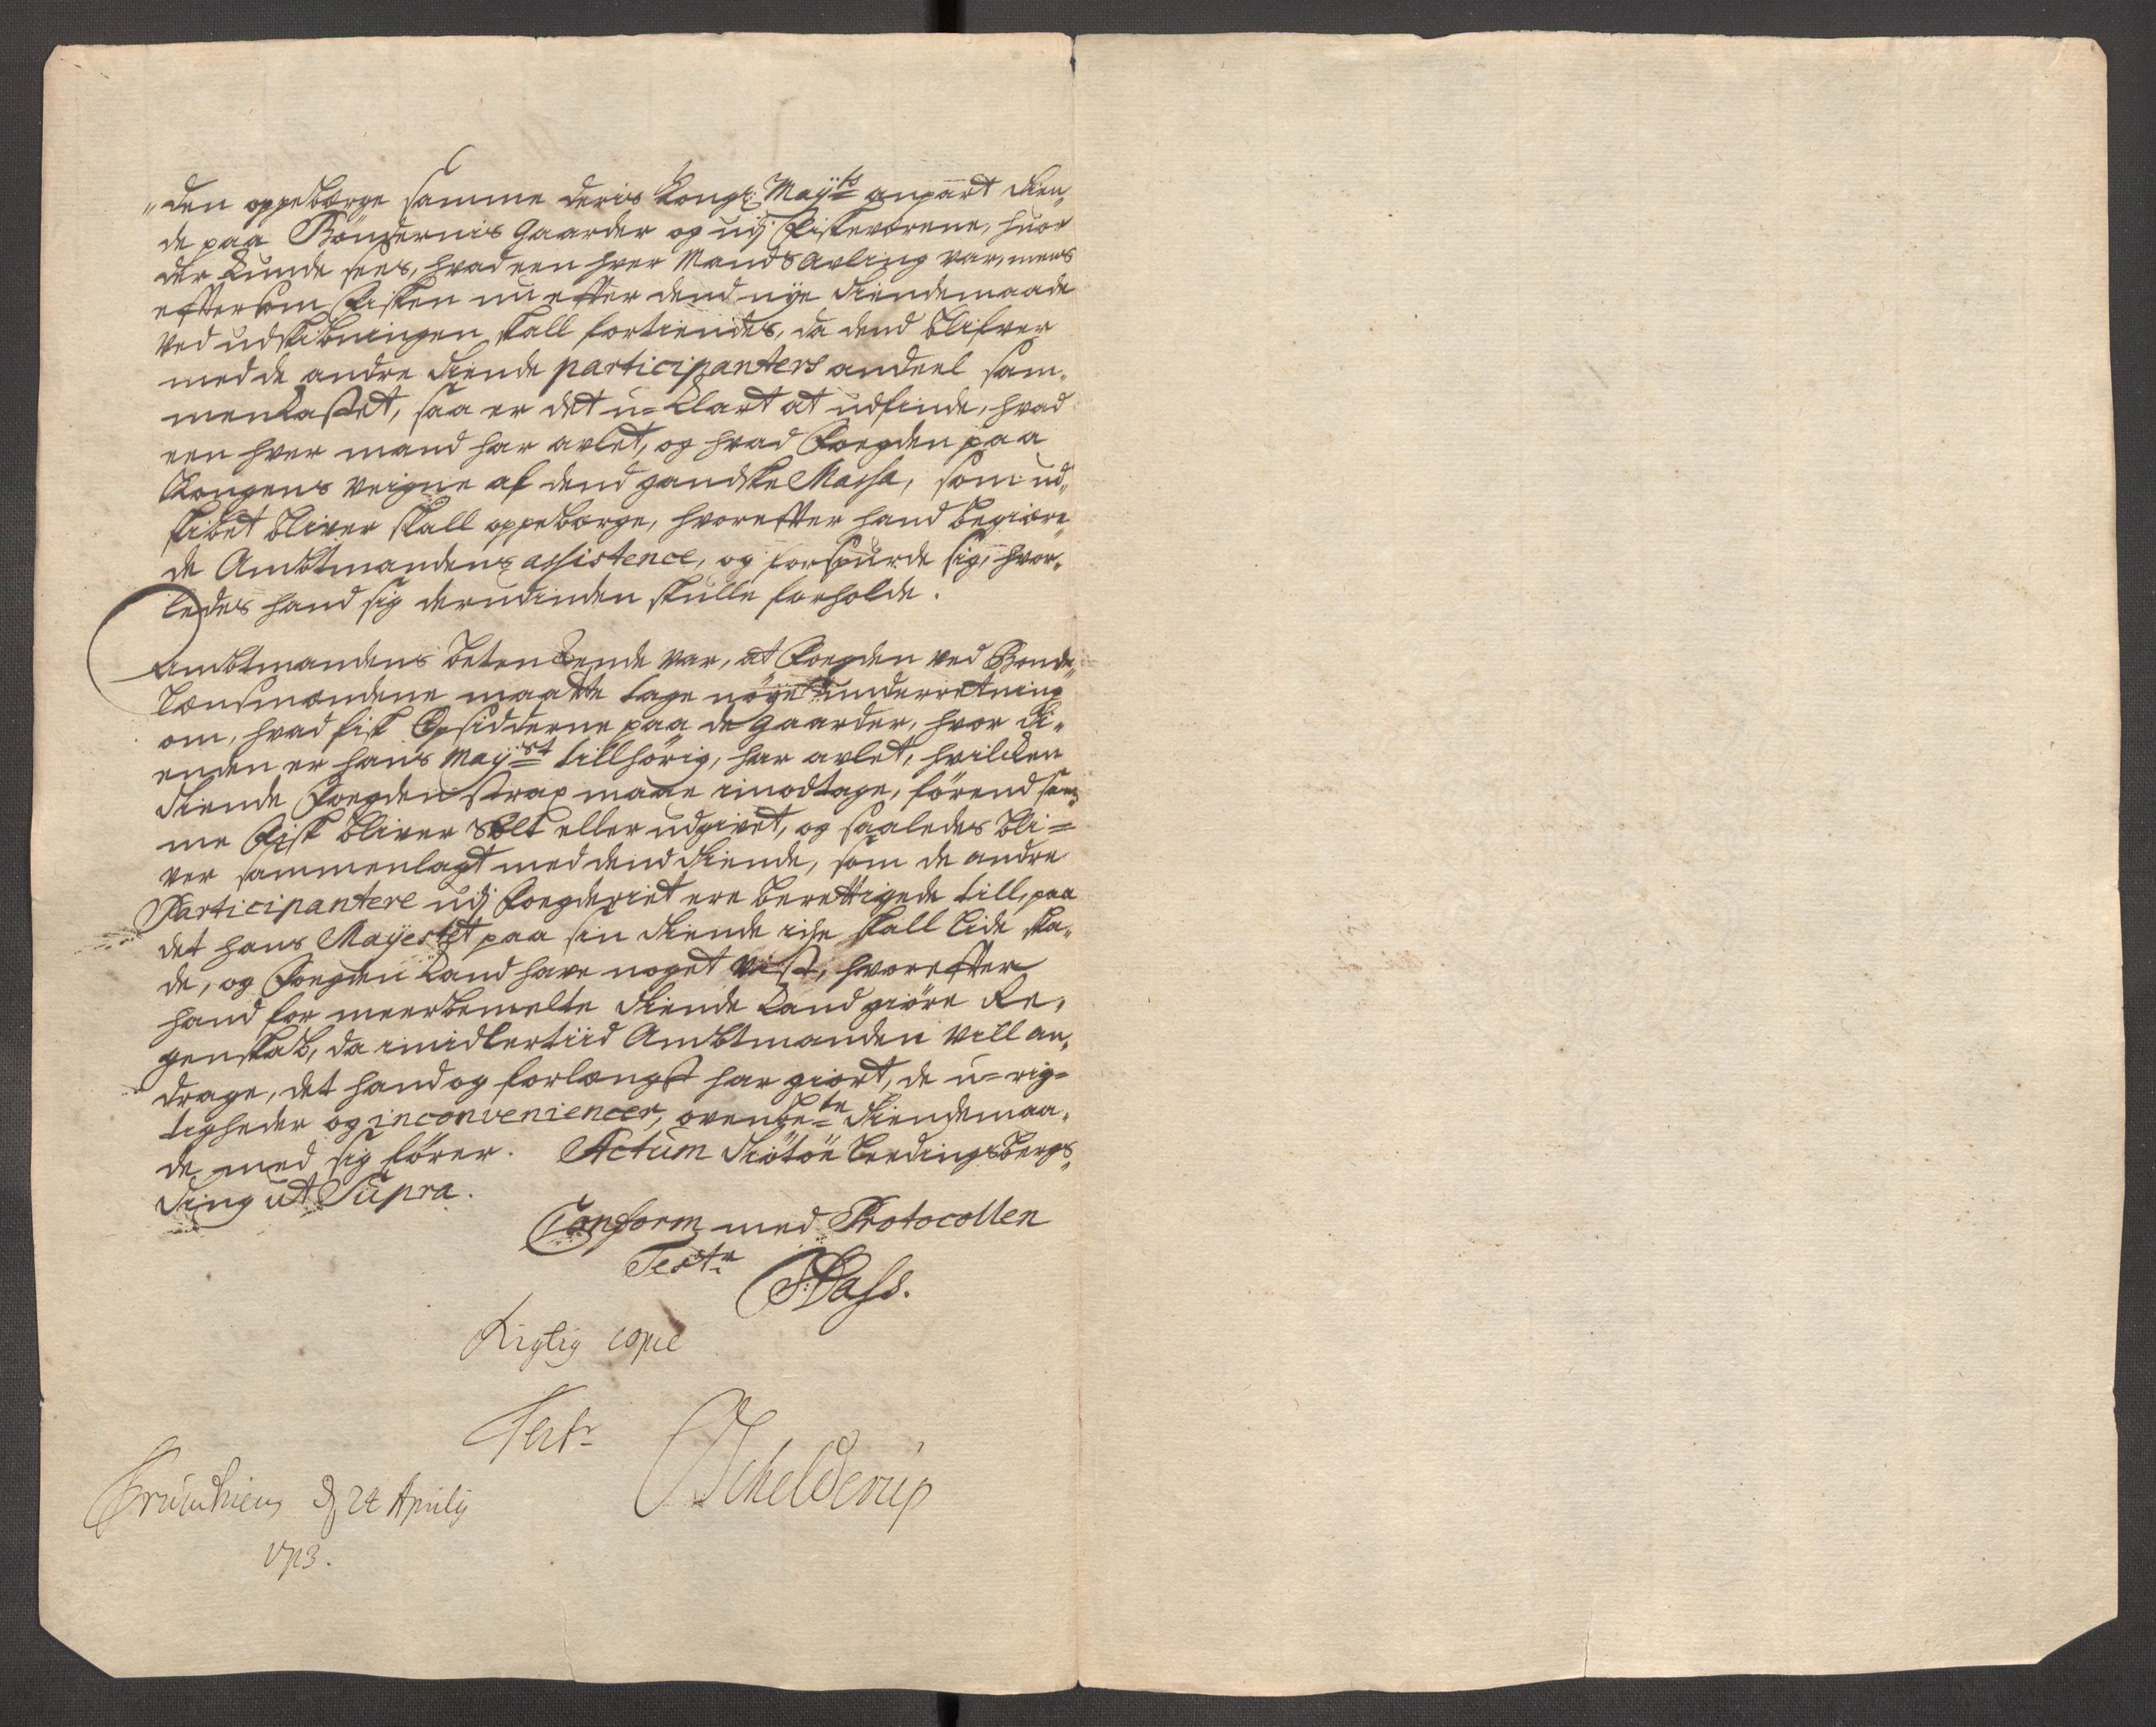 „den oppebærge samme deris Kongl: Maÿts anpart tien„
de paa Böndernis Gaarder og udj Fiskeværene, huor
der Kunde sees, hvad een hver Mands avling var, mens
eftersom Fisken nu efter dend nÿe tiendemaade
ved udskibningen skall fortiendes, da dend blifver
med de andre tiende participanters andeel sam„
menkastet, saa er det u-klart at udfinde, hvad
een hver mand har avlet, og hvad Fogden paa
Kongens veigne af dend gandske Massa, som ud„
skibet bliver skall oppebærge, hvorefter hand begiære„
de Ambtmandens assistence, og forspurde sig, hvor„
ledes hand sig derudinden skulle forholde.
Ambtmandens betenkende var, at Fogden ved Bonde„
lensmændene maatte tage nöÿe underretning
om, hvad fisk Opsidderne paa de Gaarder, hvor ti„
enden er hans Maÿst tillhörig, har avlet, hvilcken
tiende Fogden strax maae imodtage, förend sam„
me Fisk bliver solt eller udgivet, og saaledes bli-
ver sammenlagt med dend tiende, som de andre
Participantere udj Fogderiet ere berettigede till, paa
det hans Maÿestet paa sin tiende icke skall lide ska„
de, og Fogden kand have noget vist, hvorefter
hand for meerbemelte tiende kand giöre Re„
genskab, da imidlertiid Ambtmanden vill an„
drage, det hand og forlængst har giort, de u-rig-
tigheder og inconveniencer, ovenbete tiendemaa„
de med sig förer. Actum Tiötöe Leedingsbergs„
ting ut Supra.
Conform med Protocollen
Teste
Pass.
Rigtig copie
Test
Schelderup
Trundhiem d 24 Aprilij
1713.